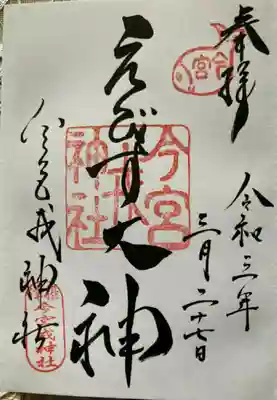 奉拝
今宮
令和三年
三月二十七日
えびす大神
今宮神社
今宮戎神社